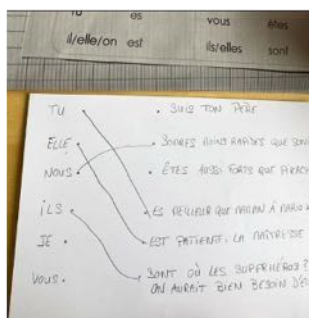 TU es vous êtes
il/elle/on est ils/elles sont
TU . SUIS TON PÈRE
ELLE SOMMES MOINS RAPIDES QUE
NOUS . ÊTES AUSSI FORTS QUE
ILS ES MEILLEUR QUE MAMAN À MARIO
JE . EST PATIENTE, LA MAÎTRESSE
VOUS . SONT OÙ LES SUPERHÉROS ?
ON AURAIT BIEN BESOIN